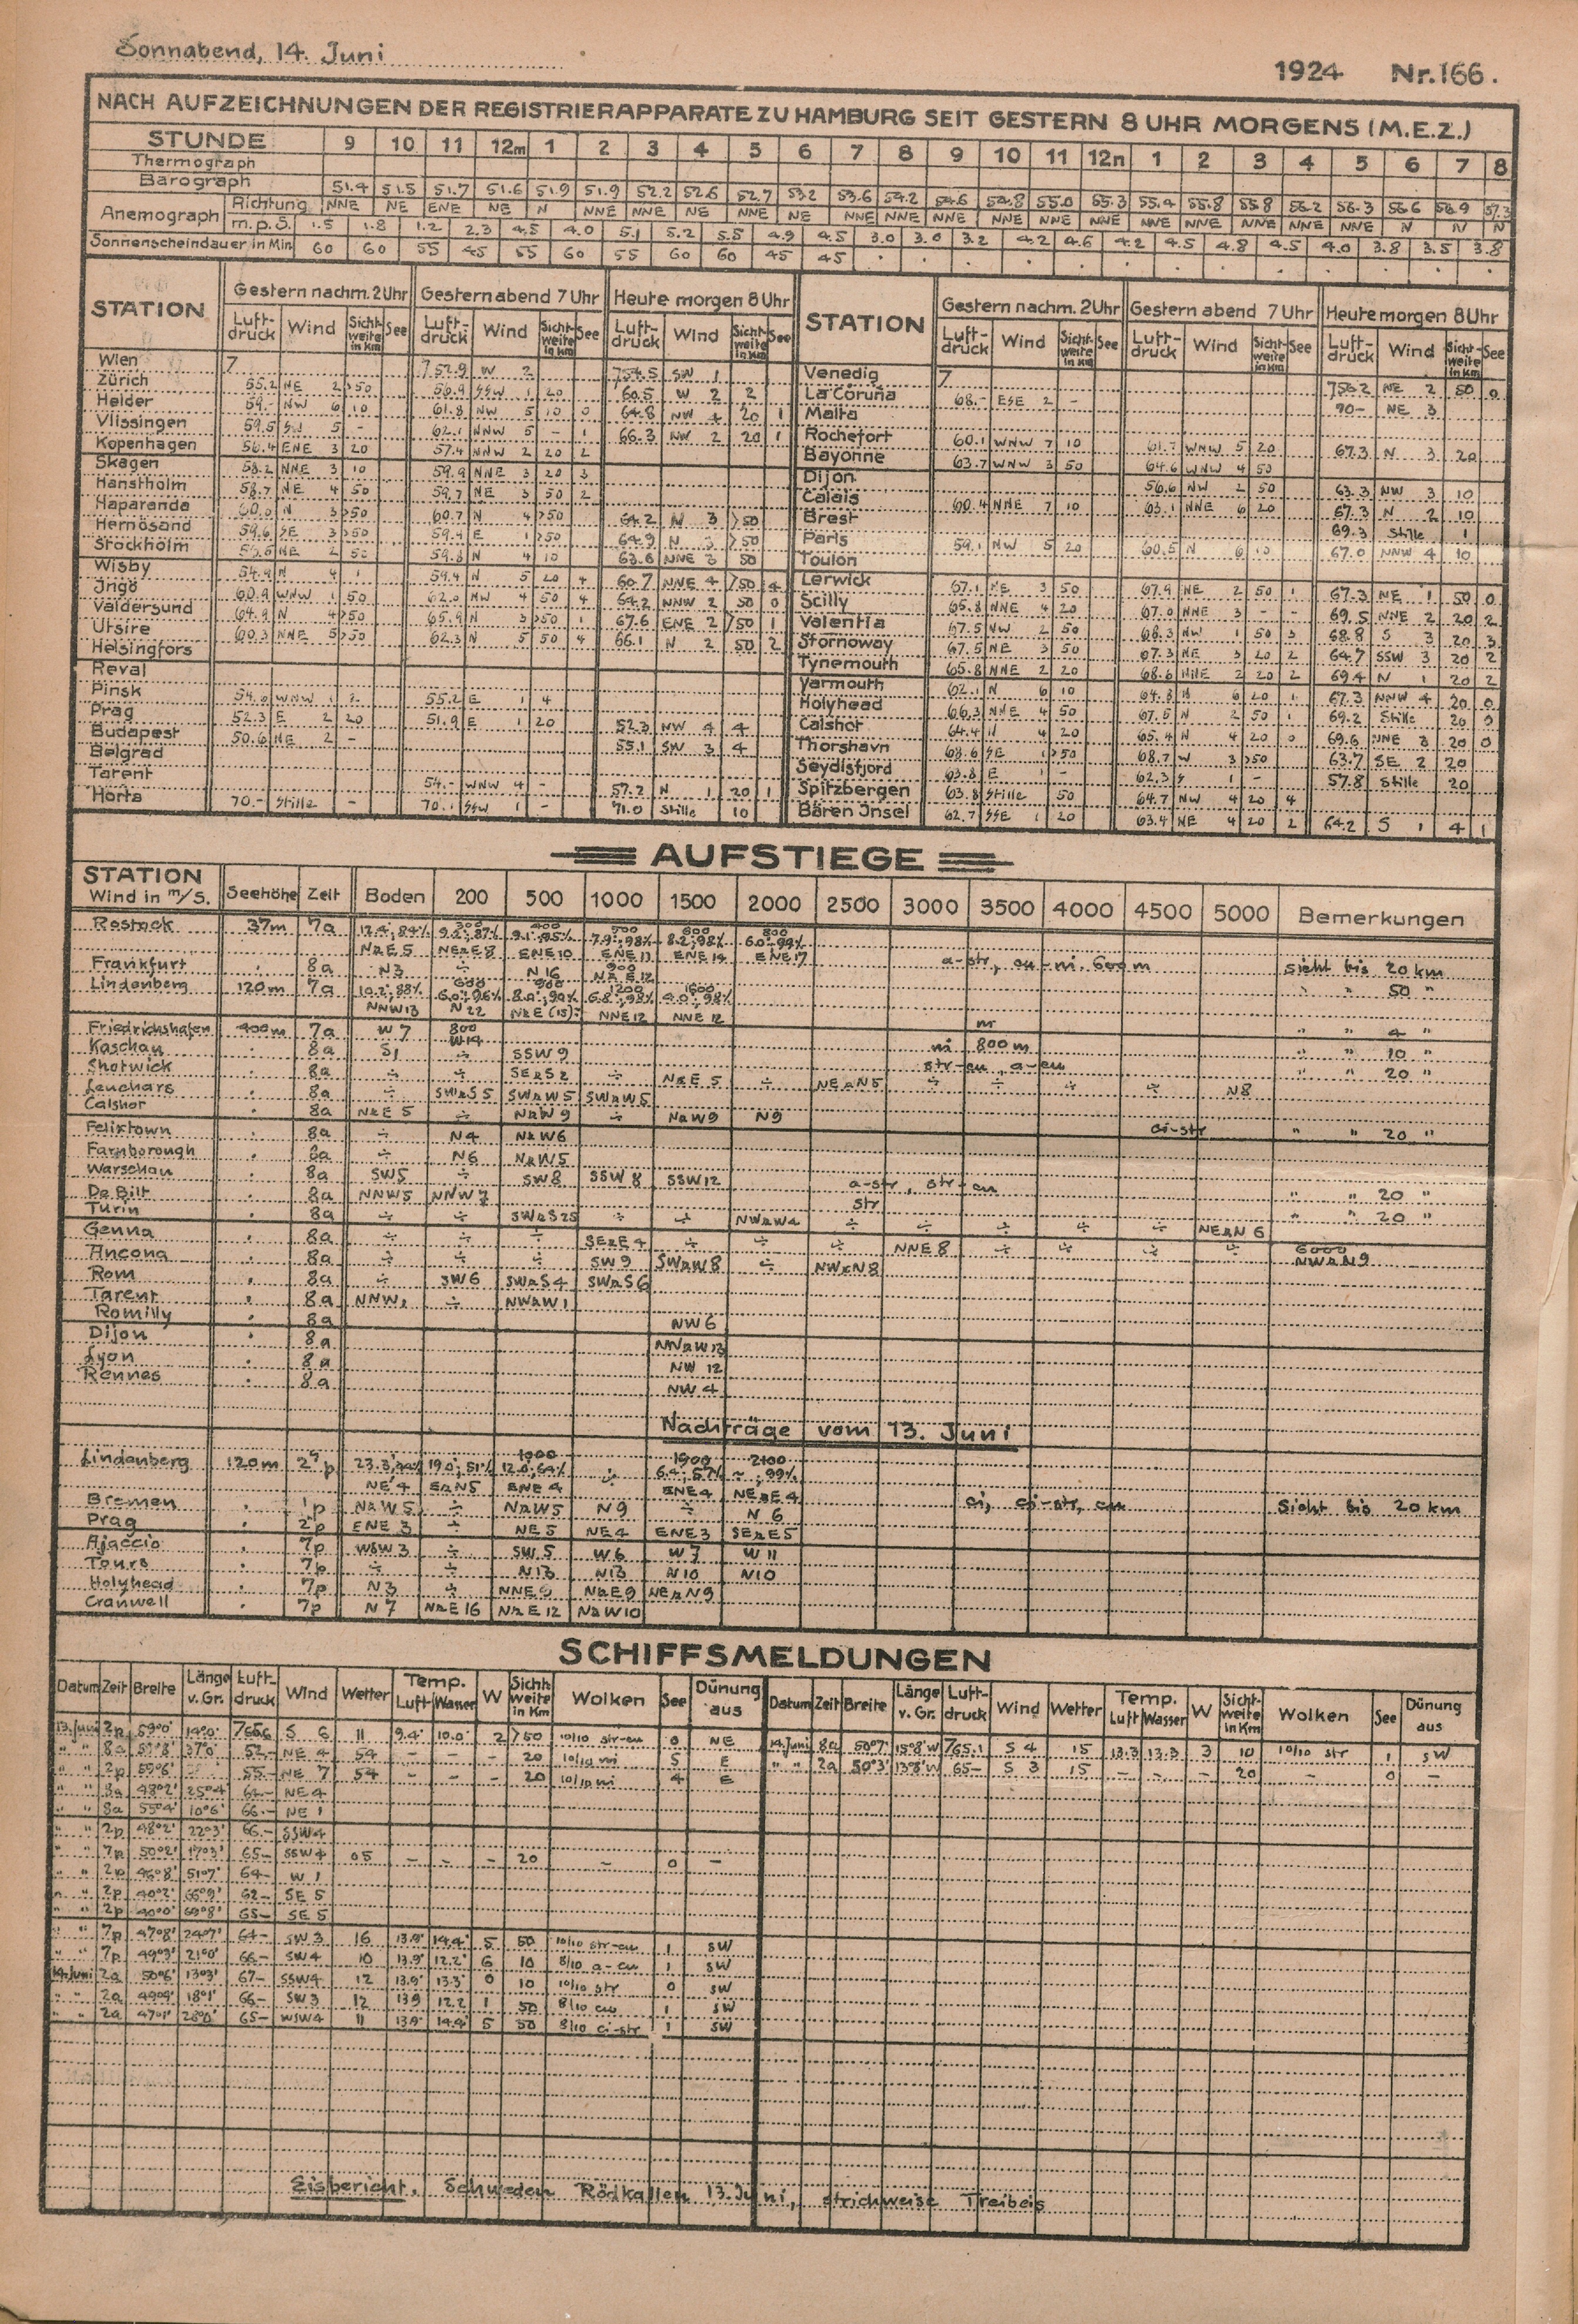 Sonnabend, 14. Juni
1924 Nr. 166.
NACH AUFZEICHNUNGEN DER REGISTRIERAPPARATE ZU HAMBURG SEIT GESTERN 8 UHR MORGENS (M.E.Z.)
STUNDE 9 10 11 12m 1 2 3 4 5 6 7 8 9 10 11 12n 1 2 3 4 5 6 7 8
Thermograph
Barograph 51.4 51.5 51.7 51.6 51.9 51.9 52.2 52.6 52.7 53.2 53.6 54.2 54.6 54.8 55.0 55.3 55.4 55.8 55.8 56.2 56.3 56.6 56.9 57.3
Anemograph Richtung NNE NE ENE NE N NNE NNE NE NNE NE NNE NNE NNE NNE NNE NNE NNE NNE NNE NNE NNE N N N
m.p.S. 1.5 1.8 1.2 2.3 4.5 4.0 5.1 5.2 5.5 4.9 4.5 3.0 3.0 3.2 4.2 4.6 4.2 4.5 4.8 4.5 4.0 3.8 3.5 3.8
Sonnenscheindauer in Min. 60 60 55 45 55 60 55 60 60 45 45 . . . . . . . . . . . . .
STATION Gestern nachm. 2 Uhr Gestern abend 7 Uhr Heute morgen 8 Uhr STATION Gestern nachm. 2 Uhr Gestern abend 7 Uhr Heute morgen 8 Uhr
Luft-druck Wind Sicht-weite in Km See Luft-druck Wind Sicht-weite in Km See Luft-druck Wind Sicht-weite in Km See Luft-druck Wind Sicht-weite in Km See Luft-druck Wind Sicht-weite in Km See Luft-druck Wind Sicht-weite in Km See
Wien 7 752.9 W 2 754.5 SW 1 Venedig 7 756.2 NE 2 50 0
Zürich 55.2 NE 2 >50 56.9 SSW 1 20 60.5 W 2 2 La Coruña 68.- ESE 2 - 70.- NE 3
Helder 59.- NW 6 10 61.8 NW 5 10 0 64.8 NW 4 20 1 Malta
Vlissingen 59.5 5 - 62.1 NNW 5 - 1 66.3 NW 2 20 1 Rochefort 60.1 WNW 7 10 61.7 WNW 5 20 67.3 N 3 20
Kopenhagen 56.4 ENE 3 20 57.4 NNW 2 20 2 Bayonne 63.7 WNW 3 50 64.6 WNW 4 50
Skagen 58.2 NNE 3 10 59.9 NNE 3 20 3 Dijon 56.6 NW 2 50 63.3 NW 3 10
Hanstholm 58.7 NE 4 50 59.7 NE 3 50 2 Calais 60.4 NNE 7 10 63.1 NNE 6 20 67.3 N 2 10
Haparanda 60.0 N 3 >50 60.7 N 4 >50 64.2 N 3 >50 Brest 69.3 Stille 1
Hernösand 59.6 SE 3 >50 59.4 E 1 >50 64.9 N 3 >50 Paris 59.1 NW 5 20 60.5 N 6 10 67.0 NNW 4 10
Stockholm NE 2 50 59.8 N 4 10 63.8 NNE 3 50 Toulon
Wisby 54.9 N 4 1 59.4 N 5 20 4 60.7 NNE 4 >50 4 Lerwick 67.1 NE 3 50 67.9 NE 2 50 1 67.3 NE 1 50 0
Jngö 60.9 WNW 1 50 62.0 NW 4 50 4 64.2 NNW 2 50 0 Scilly 65.8 NNE 4 20 67.0 NNE 3 - - 69.5 NNE 2 20 2
Valdersund 64.9 N 4 >50 65.9 N 3 >50 1 67.6 ENE 2 >50 1 Valentia 67.5 NW 2 50 68.3 NW 1 50 3 68.8 S 3 20 3
Utsire 60.3 NNE 5 >50 62.3 N 5 50 4 66.1 N 2 50 2 Stornoway 67.5 NE 3 50 67.3 NE 3 20 2 64.7 SSW 3 20 2
Helsingfors Tynemouth 65.8 NNE 2 20 68.6 NNE 2 20 2 69.4 N 1 20 2
Reval Yarmouth 62.1 N 6 10 64.8 N 6 20 1 67.3 NNW 4 20 0
Pinsk 54.0 WNW 1 55.2 E 1 4 Holyhead 66.3 NNE 4 50 67.5 N 2 50 1 69.2 Stille 20 0
Prag 52.3 E 2 20 51.9 E 1 20 52.3 NW 4 4 Calshot 64.4 N 4 20 65.4 N 4 20 0 69.6 NNE 3 20 0
Budapest 50.6 NE 2 - 55.1 SW 3 4 Thorshavn 68.6 SE 1 >50 68.7 W 3 >50 63.7 SE 2 20
Belgrad Seydisfjord 63.8 E 1 - 62.3 S 1 - 57.8 Stille 20
Tarent 54.- WNW 4 - 57.2 N 1 20 1 Spitzbergen 63.8 Stille 50 64.7 NW 4 20 4
Horta 70.- Stille - 70.1 SSW 1 - 71.0 Stille 10 Bären Jnsel 62.7 SSE 1 20 63.4 NE 4 20 2 64.2 S 1 4 1
AUFSTIEGE
STATION Wind in m/S. Seehöhe Zeit Boden 200 500 1000 1500 2000 2500 3000 3500 4000 4500 5000 Bemerkungen
Rostock 37m 7a 12.4°, 84% 9.2°, 87% 9.1°, 95% 7.9°, 98% 8.2°, 98% 6.0°, 99%
N z E 5 NE z E 8 ENE 10 ENE 13 ENE 14 ENE 17 a-str, cu-ni. 600 m Sicht bis 20 km
Frankfurt . 8a N 3 ÷ N 16 N z E 12 " " 50 "
Lindenberg 120m 7a 10.2°, 88% 6.0°, 96% 8.0°, 90% 6.8°, 98% 4.0°, 98%
NNW 13 N 22 N z E (15) NNE 12 NNE 12 ni " " 4 "
Friedrichshafen 400m 7a W 7 800 W 14 ni 800 m " " 10 "
Kaschau . 8a S 1 ÷ SSW 9 str-cu, a-cu " " 20 "
Shotwick . 8a ÷ ÷ SE z S 2 ÷ N z E 5 ÷ NE z N 5 ÷ ÷ ÷ ÷ N 8
Leuchars . 8a ÷ SW z S 5 SW z W 5 SW z W 5
Calshot . 8a N z E 5 ÷ N z W 9 ÷ N z W 9 N 9 ci-str " " 20 "
Felixtown . 8a ÷ N 4 N z W 6
Farnborough . 8a ÷ N 6 N z W 5
Warschau . 8a SW 5 ÷ SW 8 SSW 8 SSW 12 a-str, str-cu " " 20 "
De Bilt . 8a NNW 5 NNW 7 str " " 20 "
Turin . 8a ÷ ÷ SW z S 25 ÷ ÷ NW z W 4 ÷ ÷ ÷ ÷ ÷ NE z N 6 6000
Genna . 8a ÷ ÷ ÷ SE z E 4 ÷ ÷ ÷ NNE 8 ÷ ÷ ÷ ÷ NW z N 9
Ancona . 8a ÷ ÷ ÷ SW 9 SW z W 8 ÷ NW z N 8
Rom . 8a ÷ SW 6 SW z S 4 SW z S 6
Tarent . 8a NNW 1 ÷ NW z W 1
Romilly . 8a NW 6
Dijon . 8a NW z W 13
Lyon . 8a NW 12
Rennes . 8a NW 4
Nachträge vom 13. Juni
1000 1900 2100
Lindenberg 120m 2⁷p 23.3°, 44% 19.0°, 51% 12.0°, 64% ÷ 6.4°, 57% ~, 99%
NE 4 E z N 5 ENE 4 ENE 4 NE z E 4
Bremen . 1p N z W 5 ÷ N z W 5 N 9 ÷ N 6 ci, ci-str, cu Sicht bis 20 km
Prag . 2p ENE 3 ÷ NE 5 NE 4 ENE 3 SE z E 5
Ajaccio . 7p WSW 3 ÷ SW 5 W 6 W 7 W 11
Tours . 7p ÷ ÷ N 13 N 13 N 10 N 10
Holyhead . 7p N 3 ÷ NNE 9 N z E 9 NE z N 9
Cranwell . 7p N 7 N z E 16 N z E 12 N z W 10
SCHIFFSMELDUNGEN
Datum Zeit Breite Länge v. Gr. Luft-druck Wind Wetter Temp. Luft Wasser W Sicht-weite in Km Wolken See Dünung aus Datum Zeit Breite Länge v. Gr. Luft-druck Wind Wetter Temp. Luft Wasser W Sicht-weite in Km Wolken See Dünung aus
13. Juni 2p 59°0' 14°0' 766.6 S 6 11 9.4° 10.0° 2 >50 10/10 str-cu 0 NE 14. Juni 8a 50°7' 15°8' W 765.1 S 4 15 13.3 13.3 3 10 10/10 str 1 SW
" " 8a 37°0' 52.- NE 4 54 - - - 20 10/10 ni 5 E " " 2a 50°3' 13°8' W 65- S 3 15 - - - 20 - 0 -
" " 2p 59°6' 55- NE 7 54 - - - 20 10/10 ni 4 E
" " 8a 48°2' 25°4' NE 4
" " 8a 55°4' 10°6' 66.- NE 1
" " 2p 48°2' 22°3' 66.- SSW 4
" " 7p 50°2' 17°3' 65- SSW 4 05 - - - 20 - 0 -
" " 2p 46°8' 51°7' 64- W 1
" " 2p 40°2' 66°9' 62- SE 5
" " 2p 40°0' 69°8' 65- SE 5
" " 7p 47°8' 24°7' 64- SW 3 16 13.9° 14.4° 5 50 10/10 str-cu 1 SW
" " 7p 49°3' 21°0' 66- SW 4 10 13.9° 12.2° 6 10 8/10 a-cu 1 SW
14. Juni 2a 50°6' 13°3' 67- SSW 4 12 13.9° 13.3° 0 10 10/10 str 0 SW
" " 2a 49°9' 18°1' 66- SW 3 12 13.9 12.2 1 50 8/10 cu 1 SW
" " 2a 47°1' 28°0' 65- WSW 4 11 13.9° 14.4° 5 50 8/10 ci-str 1 SW
Eisbericht. Schweden Rödkallen 13. Juni, strichweise Treibeis